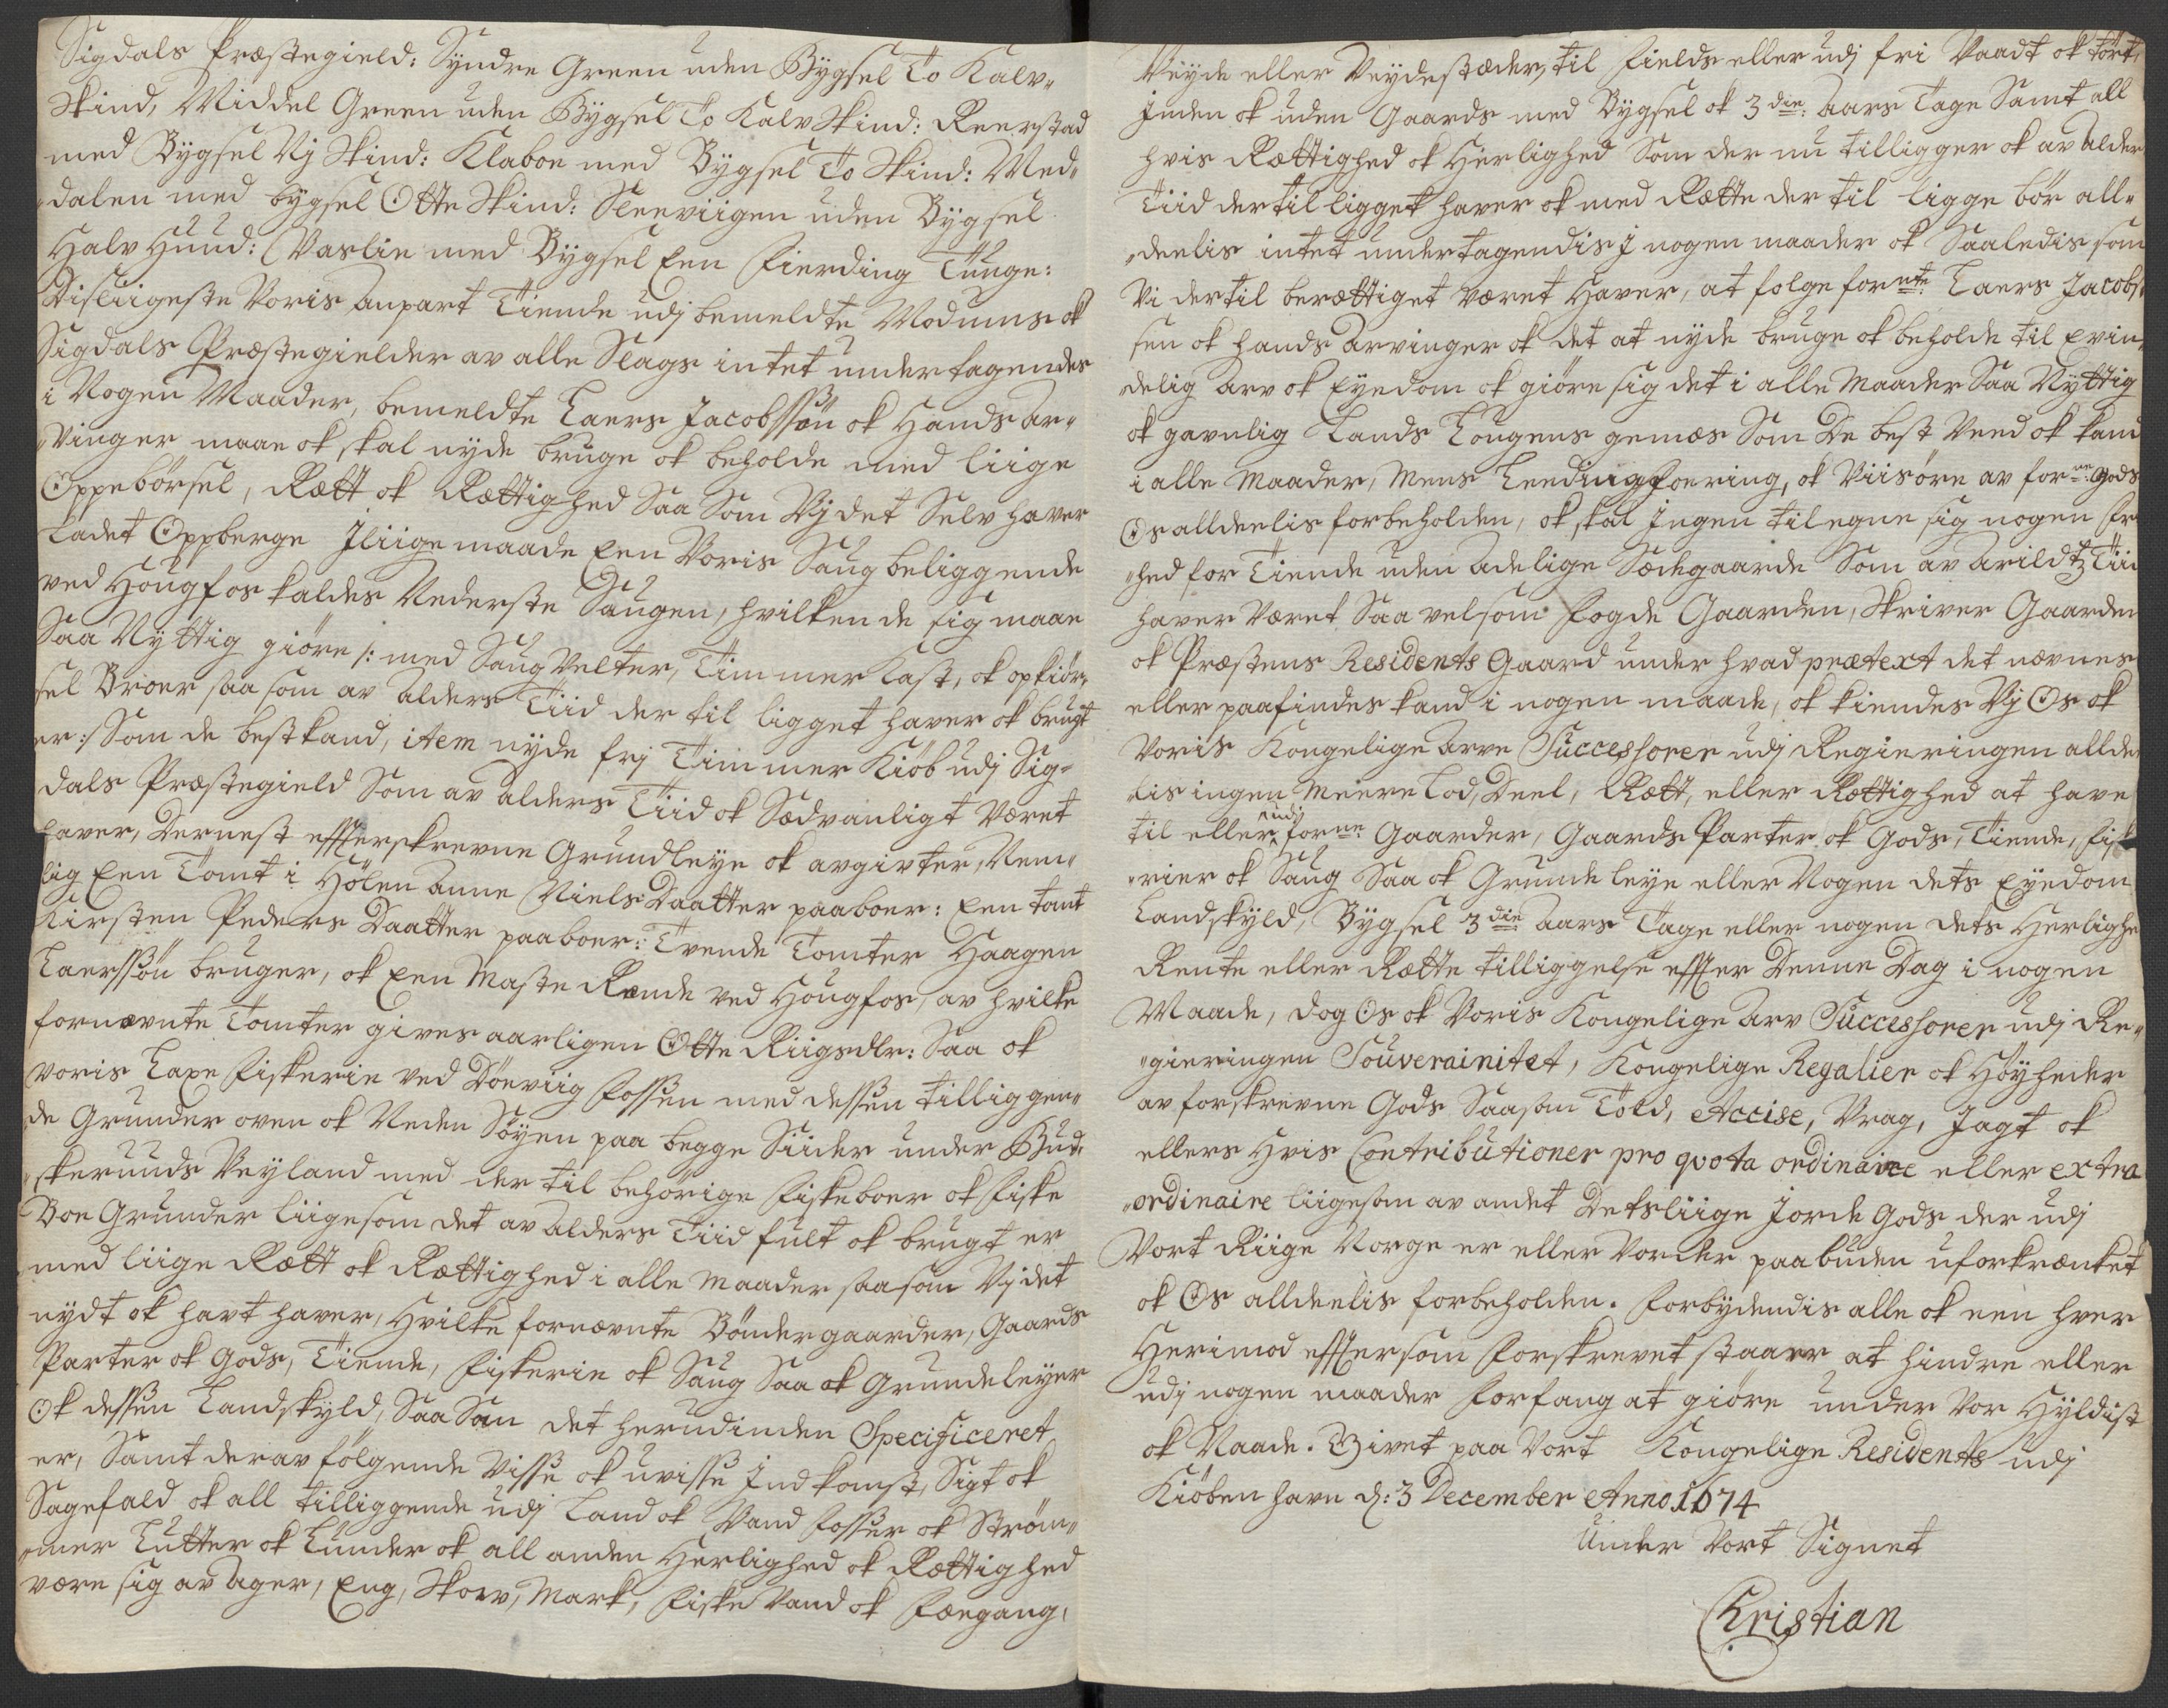 Sigdals Præstegield: Syndre Green uden Bygsel To Kalv„
Skind, Middel Green uden Bygsel To Kalv Skind: Reerstad
med Bygsel Vj Skind: Klaboe med Bygsel To Skind: Med„
„dalen med bygsel Otte Skind: Sleeviigen uden Bygsel
Halv Huud: Vaslie med Bygsel Een Fierding Tunge:
Disliigeste Voris anpart Tiende udj bemeldte Modums ok
Sigdals Præstegielder av alle Slags intet undertagendes
i Nogen Maader, bemeldte Laers Jacobssøn ok Hands ar„
„vinger maae ok skal nyde bruge ok beholde med liige
Oppebørsel, Rætt ok Rættighed Saa Som Vj det Selv haver
Ladet Oppberge Jliigemaade Een Voris Saug beliggende
ved Hougfos kaldes Nederste Saugen, hvilken de sig maae
Saa Nyttig giøre /: med Saug Velter, Timmer Kast, ok opkiør„
sel Broer saa som av alders Tiid der til ligget haver ok brugt
er:/ Som de best kand, item nyde frj Timmer Kiøb udj Sig„
dals Præstegield Som av alders Tiid ok Sædvanligt Været
haver, Dernest effterskrevne Grundleye ok avgivter, Nem„
lig Een Tomt i Hølen Anne Niels Daatter paaboer: Een tomt
Kirsten Peders Daatter paaboer: Tvende Tomter Haagen
Laerssøn bruger, ok Een Maste Rende ved Hougfos, av hvilke
fornævnte Tomter gives aarligen Otte Riigsdlr: Saa ok
voris Laxe Fiskerie ved Døeviig Fossen med dessen tilliggen„
de Grunder oven ok Neden Søyen paa begge Siider under Bud„
„skeruuds Veyland med der til behørige Fiskeboer ok Fiske
Boe Grunder liigesom det av Alders Tiid fult ok brugt er
med liige Rætt ok Rættighed i alle Maader saasom Vj det
nydt ok havt haver, Hvilke fornævnte Bøndergaarder, Gaards
Parter ok Gods, Tiende, Fiskerie ok Saug Saa ok Grundeleyer
Ok dessen Landskyld, Saa Som det herudinden Specificeret
er, Samt derav følgende Visse ok uvisse Indkomst, Sigt ok
Sagefald ok all tilliggende udj Land ok Vand Fosser ok Strøm„
„mer Lutter ok Lunder ok all anden Herlighed ok Rættighed
være sig av Ager, Eng, Skow, Mark, Fiske Vand ok Fægang,
Veyde eller Veydestæder, til Fields eller udj fri Vaadt ok tørt,
Jnden ok uden Gaards med Bygsel ok 3 die: Aars Tage Samt all
hvis Rættighed ok Herlighed Som der nu tilligger ok av Alder
Tiid dertil ligget haver ok med Rætte der til ligge bør all„
„deelis intet undertagendis J nogen maader ok Saaledis som
Vi dertil berættiget været Haver, at folge fornte: Laers Jacobs„
sen ok hands Arvinger ok det at nyde bruge ok beholde til Evin„
„delig Arv ok Eyedom ok giøre sig det i alle Maader Saa Nyttig
ok gavnlig Lands Lougens gemæs Som De best Veed ok kand
i alle Maader, Mens Leeding, Foering, ok Viisøre av forne: Gods
Os alldeelis forbeholden, ok skal Jngen tilegne sig nogen Fri
„hed for Tiende uden Adelige Sædegaarde Som av Arildtz Tiid
haver Været Saa velsom Fogde Gaarden, Skriver Gaarden
ok Præstens Residents Gaard under hvad prætext det nævnes
eller paafindes kand i nogen maade, ok kiendes Vj Os ok
Voris Kongelige Arve Successorer udj Regieringen allde„
„lis ingen Meere Lod, Deel, Rætt, eller Rættighed at have
til eller udj forne Gaarder, Gaards Parter ok Gods, Tiende, Fisk
„erier ok Saug Saa ok Grunde leye eller Nogen dets Eyedom
Landskyld, Bygsel 3 die Aars Tage eller nogen dets Herlighe
Rente eller Rætte tilliggelse effter Denne Dag i nogen
Maade, dog Os ok Voris Kongelige Arv Successorer udj Re„
„gieringen Souverainitet, Kongelige Regalier ok Høyheder
av forskrevne Gods Saasom Told, Accise, Vrag, Jagt ok
ellers Hvis Contributioner pro qvota ordinaire eller extra
„ordinaire liigesom av andet Detsliige Jorde Gods der udj
Vort Riige Norge er eller Vorder paabuden uforkrænket
ok Os alldeelis forbeholden. Forbydendis alle ok een hver
Herimod effter som Forskrevet staaer at hindre eller
udj nogen maader Forfang at giøre under Vor Hyldist
ok Naade. Givet paa Vort Kongelige Residents udj
Kiøbenhavn d: 3 December Anno 1674
Under Vort Signet
Christian